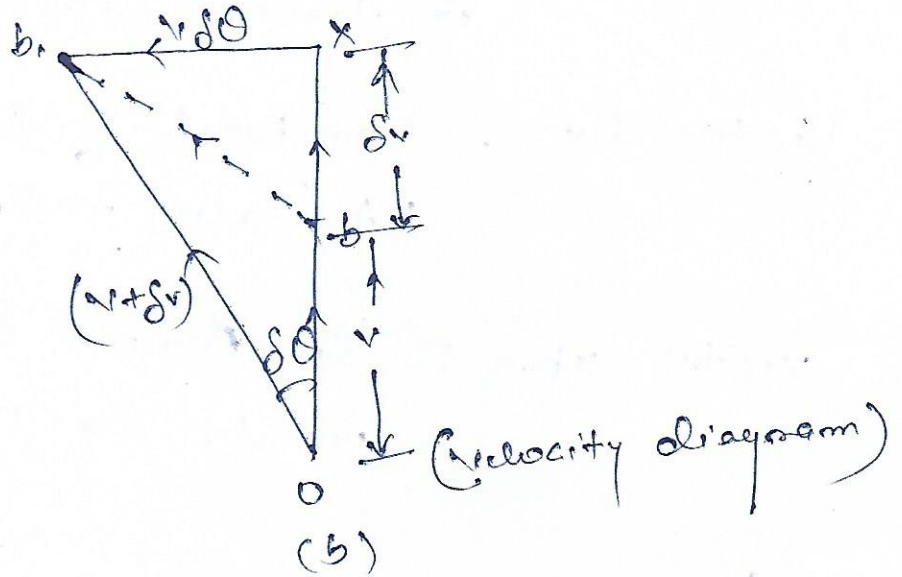 b₁ v δθ x
δv
b
(v+δv)
δθ
v
(velocity diagram)
O
(b)